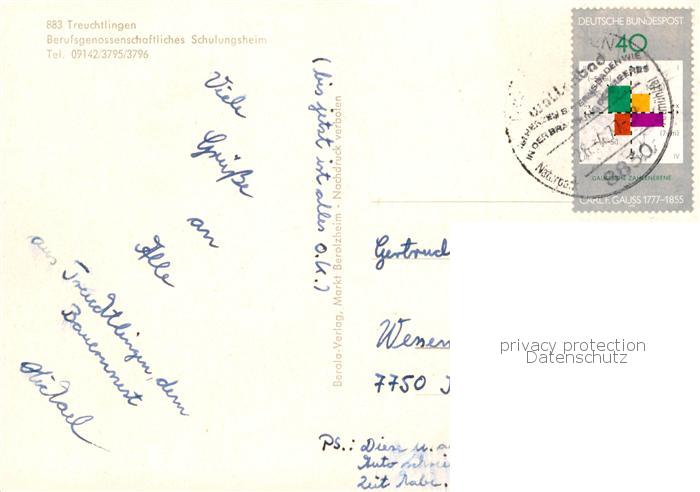 883 Treuchtlingen
Berufsgenossenschaftliches Schulungsheim
Tel. 09142/3795/3796
Viele
Grüße
an
Alle
aus Treuchtlingen, dem
Bauernnest
Michael
(bis jetzt ist alles O.K.)
Berola-Verlag, Markt Berolzheim - Nachdruck verboten
DEUTSCHE BUNDESPOST
40
GAUSSSCHE ZAHLENEBENE
CARL F. GAUSS 1777-1855
8830
Gertrud
7750
privacy protection
Datenschutz
PS.: Diese u. a
Auto
Zeit habe.